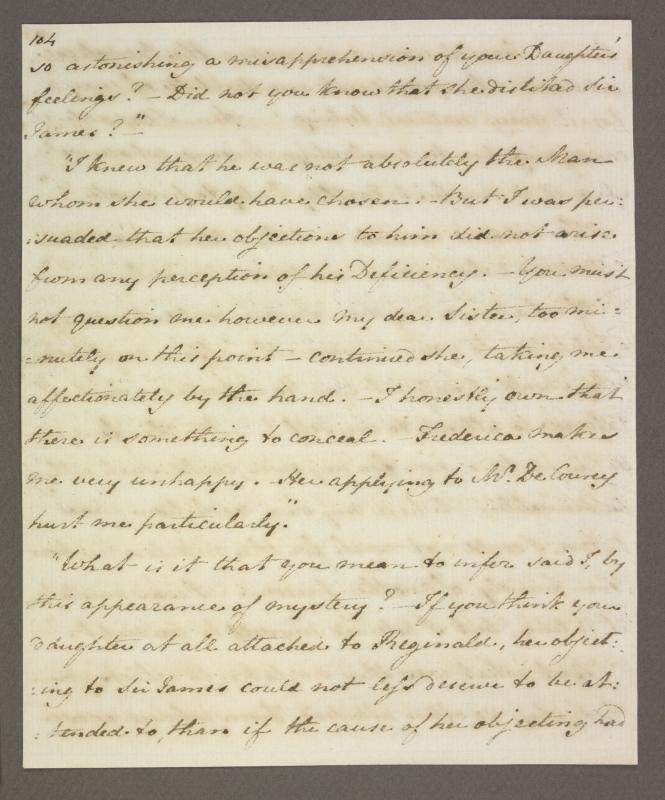 104
so astonishing a misapprehension of your Daughter's
feelings? – Did not you know that she disliked Sir
James? –"
"I knew that he was not absolutely the Man
whom she would have chosen. – But I was per:
:suaded that her objections to him did not arise
from any perception of his Deficiency. – You must
not question me however my dear Sister, too mi=
=nutely on this point – continued she, taking me
affectionately by the hand. – I honestly own that
there is something to conceal. – Frederica makes
me very unhappy. – Her applying to Mr. De Courcy
hurt me particularly."
"What is it that you mean to infer said I, by
this appearance of mystery? – If you think your
daughter at all attached to Reginald, her object:
:ing to Sir James could not less deserve to be at:
:tended to, than if the cause of her objecting had